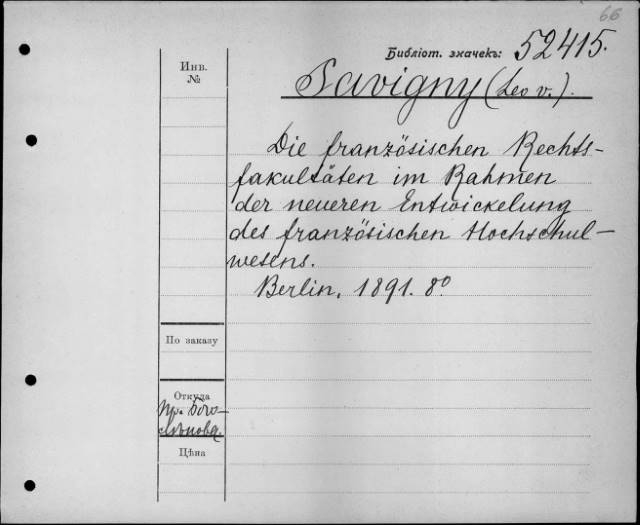 66
Библіот. значекъ: 52415.
Инв.
№
Savigny (Leo v.).
Die französischen Rechts-
fakultäten im Rahmen
der neueren Entwickelung
des französischen Hochschul-
wesens.
Berlin, 1891. 8º
По заказу
Откуда
Пр. Бого-
слѣпова.
Цѣна